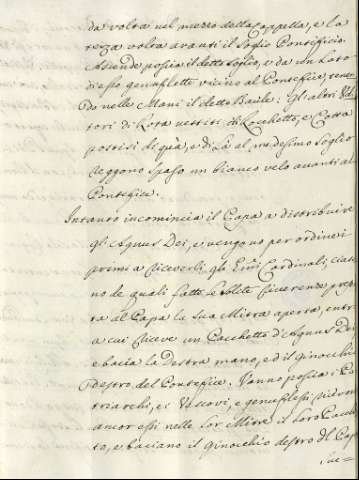 da volta nel mezzo della Cappella, e la
terza volta avanti il Soglio Pontificio.
Ascende poscia il detto Soglio, e da un Lato
d'esso genuflette vicino al Pontefice, tenen
do nelle Mani il detto Bacile: gli altri Udi
tori di Rota vestiti di Rocchetto, e Cotta
postisi di quà, e di Là al medesimo Soglio
reggono spaso un bianco velo avanti al
Pontefice.
Intanto incomincia il Papa a distribuire
gl'Agnus Dei, e vengono per ordine i
primi a riceverli gli Emi Cardinali; ciasc
no de quali fatte le solite riverenze prese
ta al Papa la Sua Mitra aperta, entro
a cui riceve un Pacchetto d'Agnus Dei
e bacia la Destra mano, ed il ginocchio
destro del Pontefice. Vanno poscia i Pa
triarchi, e i Vescovi, e genuflessi ricevon
ancor essi nelle Lor Mitre il Loro Pacchet
to, e baciano il ginocchio destro dl Papa